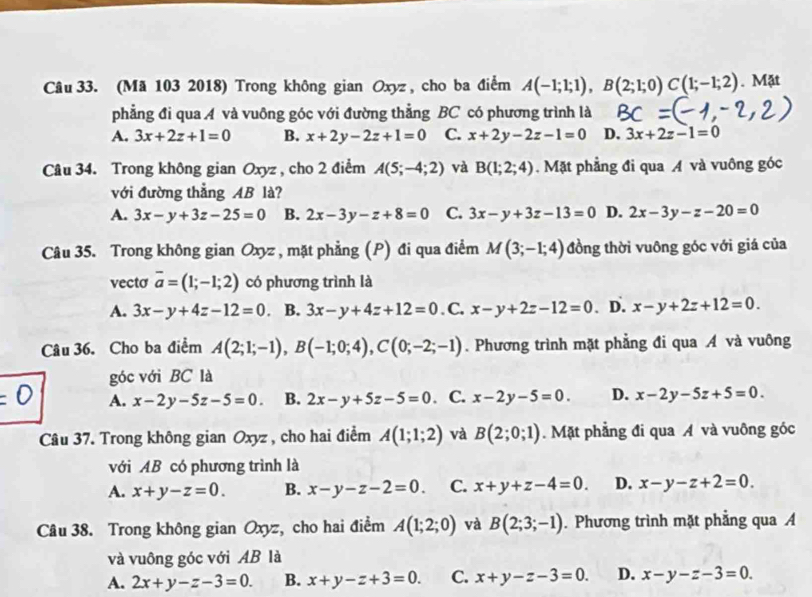 Câu 33. (Mã 103 2018) Trong không gian Oxyz, cho ba điểm A(-1;1;1), B(2;1;0) C(1;-1;2). Mặt
phẳng đi qua A và vuông góc với đường thẳng BC có phương trình là BC = (-1,-2,2)
A. 3x+2z+1=0 B. x+2y-2z+1=0 C. x+2y-2z-1=0 D. 3x+2z-1=0
Câu 34. Trong không gian Oxyz, cho 2 điểm A(5;-4;2) và B(1;2;4). Mặt phẳng đi qua A và vuông góc
với đường thẳng AB là?
A. 3x-y+3z-25=0 B. 2x-3y-z+8=0 C. 3x-y+3z-13=0 D. 2x-3y-z-20=0
Câu 35. Trong không gian Oxyz, mặt phẳng (P) đi qua điểm M(3;-1;4) đồng thời vuông góc với giá của
vectơ a̅=(1;-1;2) có phương trình là
A. 3x-y+4z-12=0. B. 3x-y+4z+12=0. C. x-y+2z-12=0. D. x-y+2z+12=0.
Câu 36. Cho ba điểm A(2;1;-1), B(-1;0;4), C(0;-2;-1). Phương trình mặt phẳng đi qua A và vuông
góc với BC là
= 0
A. x-2y-5z-5=0. B. 2x-y+5z-5=0. C. x-2y-5=0. D. x-2y-5z+5=0.
Câu 37. Trong không gian Oxyz, cho hai điểm A(1;1;2) và B(2;0;1). Mặt phẳng đi qua A và vuông góc
với AB có phương trình là
A. x+y-z=0. B. x-y-z-2=0. C. x+y+z-4=0. D. x-y-z+2=0.
Câu 38. Trong không gian Oxyz, cho hai điểm A(1;2;0) và B(2;3;-1). Phương trình mặt phẳng qua A
và vuông góc với AB là
A. 2x+y-z-3=0. B. x+y-z+3=0. C. x+y-z-3=0. D. x-y-z-3=0.